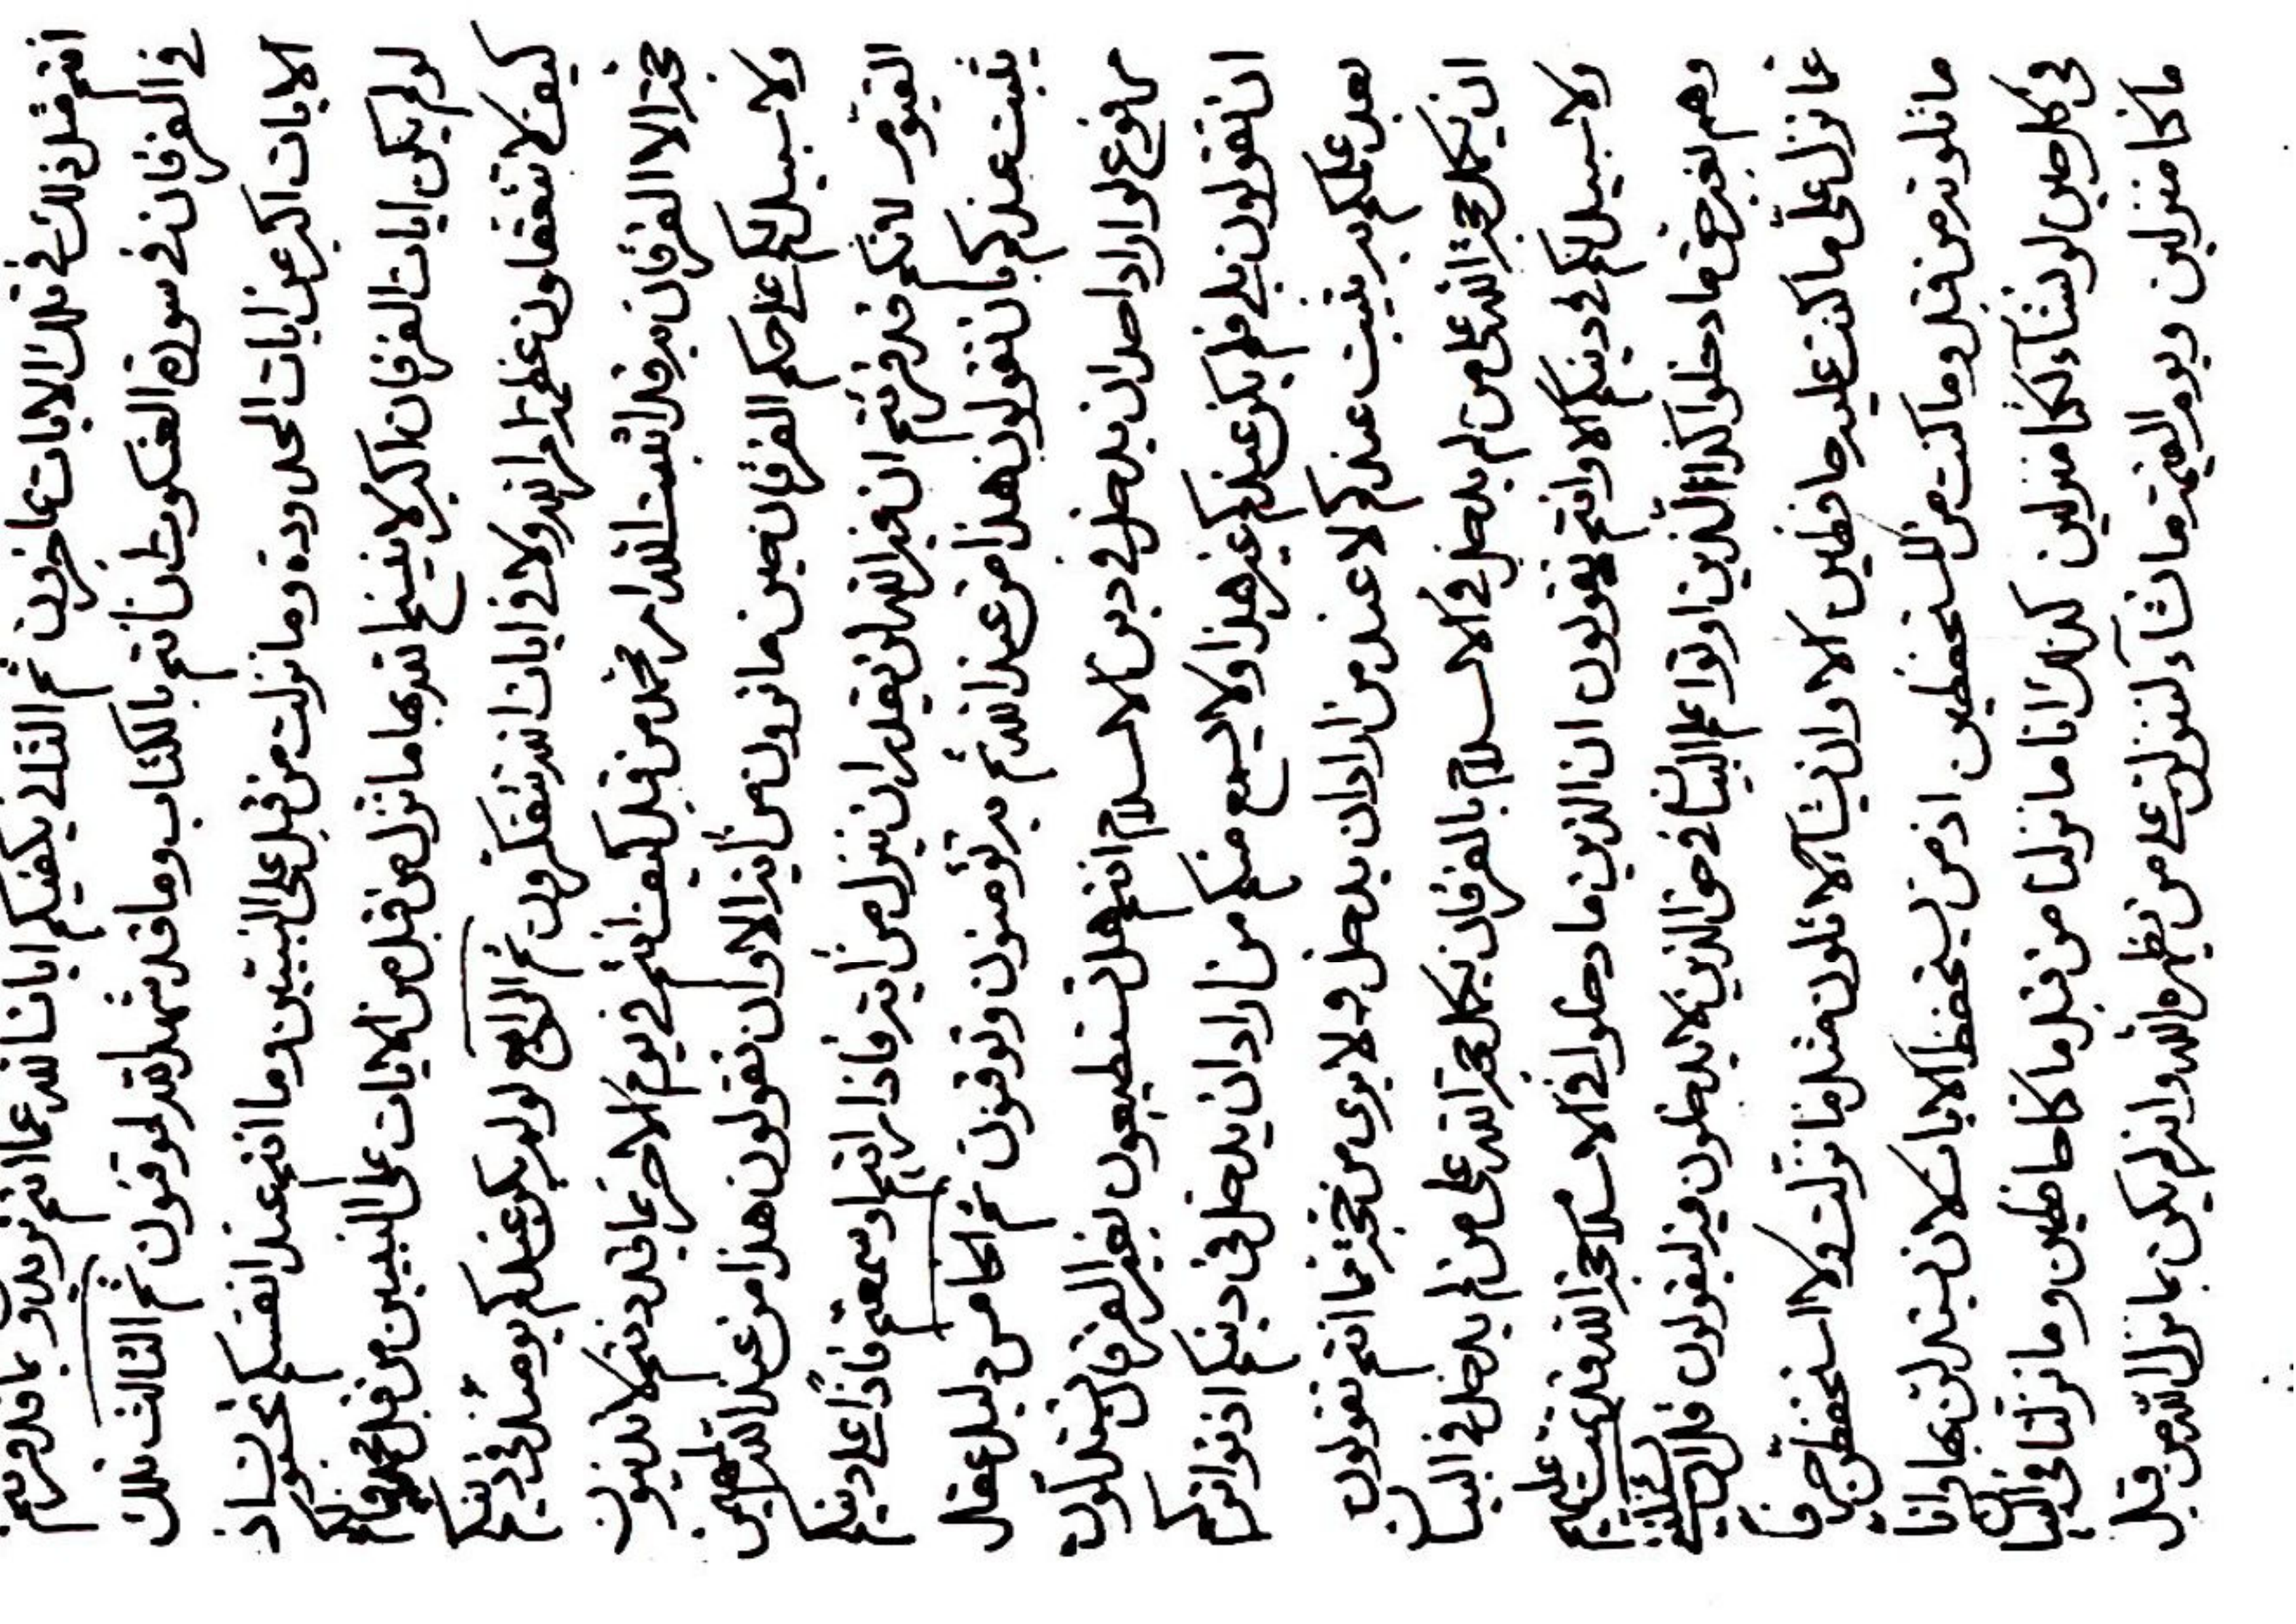 انتم مثل ذلك في تلك الايات عاجزون ثم الثاني يكفيكم ايات الله عما انتم تريدون بما قد قرئتم
في الفرقان في سورة العنكبوت ان انتم بالكتاب وما قد شهد الله لموقنون ثم الثالث تلك
الايات اكبر عن ايات المحدودة وما نزلت من قبل على النبيين وما انتم عند انفسكم تحسبون اذ
لو لم يكن ايات الفرقان اكبر لا ينسخ الله بها ما نزل من قبل من الايات على النبيين من قبل محمد فما لكم
كيف لا تتعقلون عظمة امر الله ولا في ايات الله تتفكرون ثم الرابع لو لم يكن عندكم يومئذ في دينكم
حجة الا الفرقان به قد اثبت الله امر محمد من قبل كيف انتم في يوم الاخر بما قد دنتم لا تدينون
ولا سبيل لكم على حكم الفرقان حين ما ترون من أية الا وان تقولون هذا من عند الله المهيمن
القيوم لانكم قد قرئتم ان غير الله لن يقدر ان ينزل من أية فاذا رايتم او سمعتم فاذا على دينكم
يثبت عندكم بان تقولون هذا من عند الله ثم به تؤمنون وتوقنون ثم الخامس دليل عقل
مرفوع لو اراد احد ان يدخل في دين الاسلام انتم هل تستطيعون بغير الفرقان تستدلون
ان تقولون بلى فلم يكن عندكم غير هذا ولا يسمع منكم من اراد ان يدخل في دينكم اذ تواتركم
بعد علمكم به يثبت عندكم لا عند من اراد ان يدخل ولا يرى من حجة فما انتم تقولون
ان يكمل حجة الله على من لم يدخل في الاسلام بالفرقان يكمل حجة الله على من لم يدخل في البيان
ولا سبيل لكم في دينكم الا وانتم تقولون ان الذين ما دخلوا في الاسلام حجة الله قد تمت عليهم
وهم بغير حق ما دخلوا كذا الذين اوتوا علم البيان في حق الذين لا يدخلون فيه ليقولون قل ان
عما نزل علي ما كنت عليه حافظين الا وان يشاء الا تلون مثل ما نزلت ولا استحفظن حرفا
ما تلوته من قبل وما كنت من المستحفظين اذ من يستحفظ الايات لان يستدلن بها وانا
في كل حين لو نشاء لكنا منزلين كذلك انا ما نزلنا من قبل ما كنا حافظين وما نزلنا في البيان
ما كنا منزلين ويوم القيمة ما نشاء لننزلن على من نظهره الله وانه لم يكن بما نزل الله من قبل